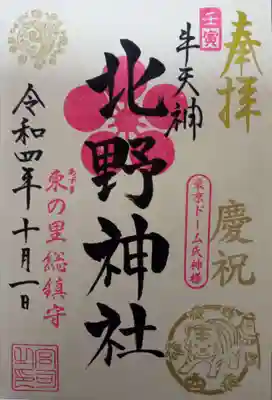 奉拝
慶祝
壬寅
牛天神
東京ドーム氏神様
北野神社
あずま
東の里総鎮守
令和四年十月一日